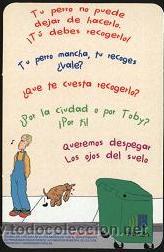 Tu perro no puede
dejar de hacerlo.
¡Tú debes recogerlo!
Tu perro mancha, tu recoges
¿vale?
¿Que te cuesta recogerlo?
¿Por la ciudad o por Toby?
¡Por ti!
Queremos despegar
Los ojos del suelo
todocoleccion.net